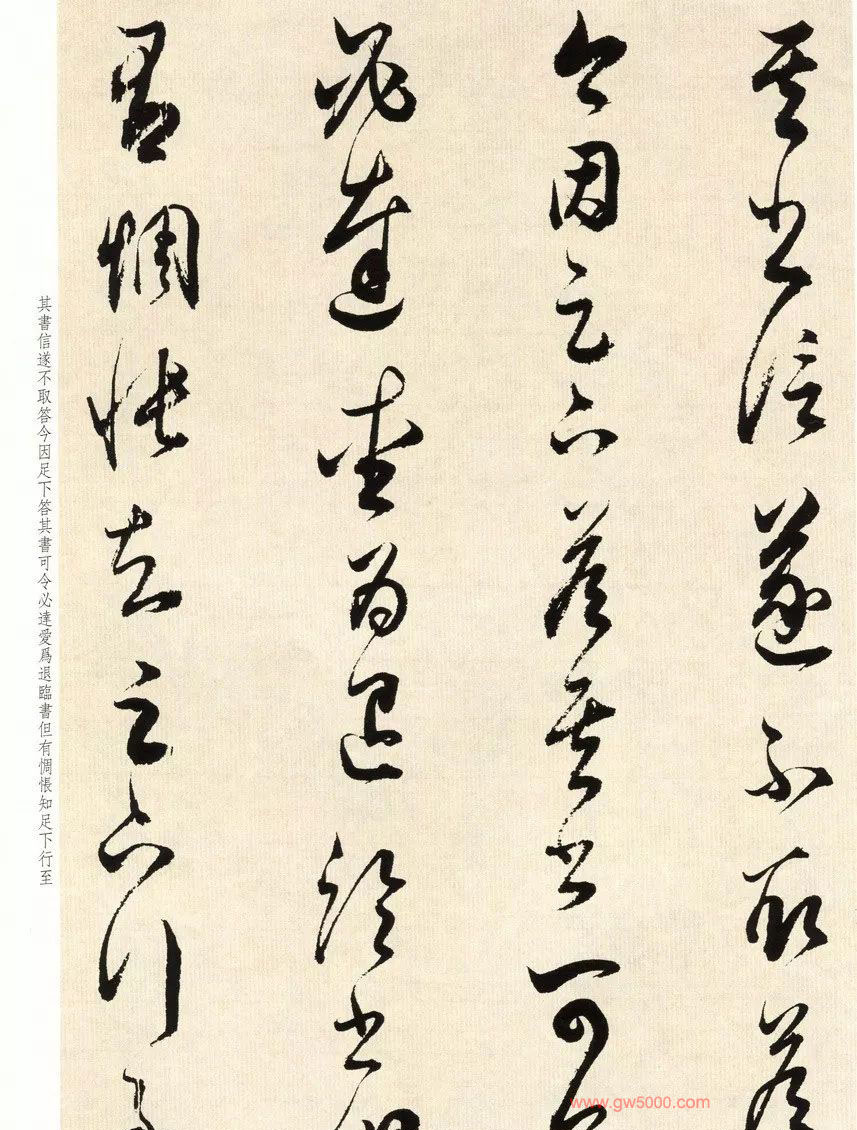 其书信遂不取答
今因足下答其书可令
必達爱为退临书但
有惆怅知足下行至
其書信遂不取答今因足下答其書可令必達愛爲退臨書但有惆悵知足下行至
www.gw5000.com